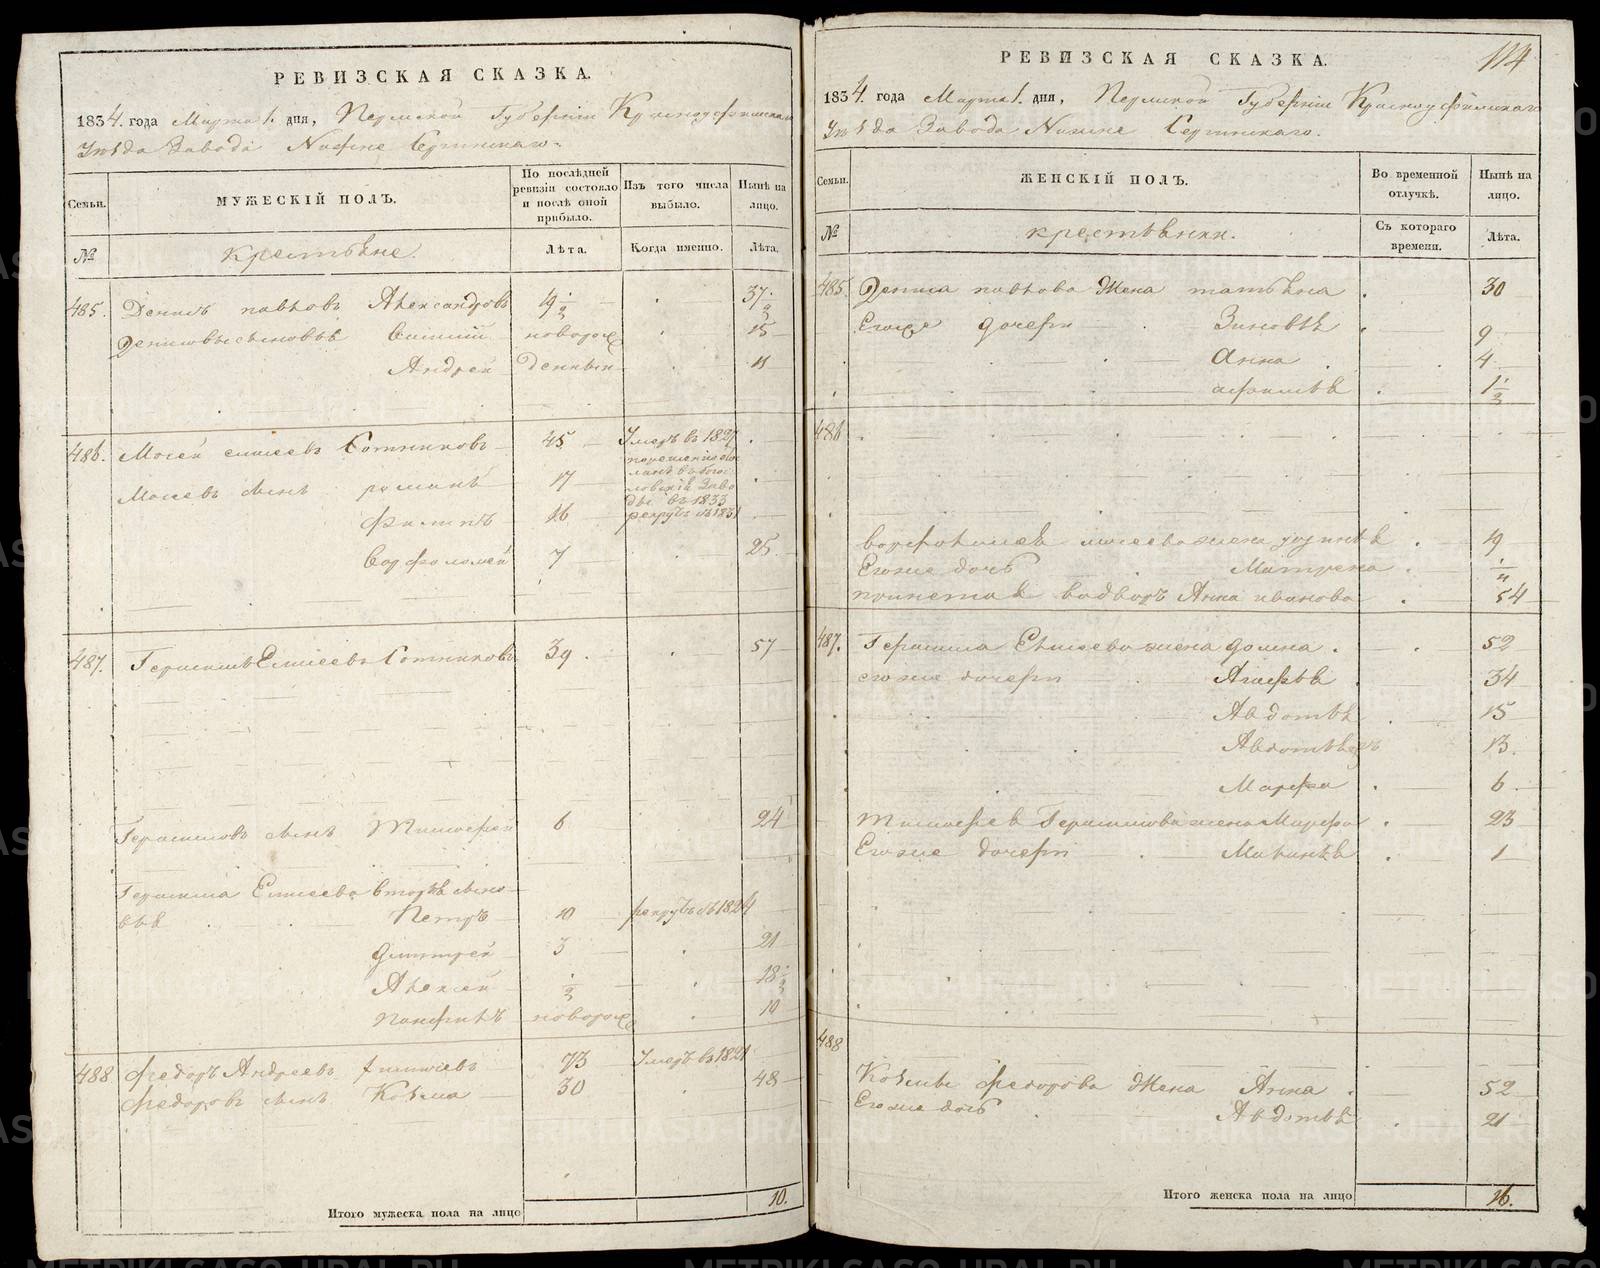 РЕВИЗСКАЯ СКАЗКА.
1834. года Марта 1. дня, Пермской Губернiи Красноуфимскаго
Уѣзда Завода Нижне Сергинскаго.
Семьи.
МУЖЕСКIЙ ПОЛЪ.
По послѣдней ревизiи состояло и послѣ оной прибыло.
Изъ того числа выбыло.
Нынѣ на лицо.
№
крестьяне.
Лѣта.
Когда именно.
Лѣта.
485. Денисъ павловъ Александровъ 19 1/2 37 1/2
Денисовы сыновья новорож 15
Андрей денный 11
486. Мосей елисеевъ Сотниковъ 45 Умеръ в 1827
Мосеевъ сынъ романъ 17 в 1833
филипъ 16 рекрутъ въ 1831
Варфоломей 7 25
487. Герасимъ Елисеевъ Сотниковъ 39 57
Герасимовъ сынъ Тимофей 6 24
Герасима Елисеева вторыя сыно-
вья Петръ 10 рекрутъ въ 1824
Дмитрей 3 21
Алексей 1/2 18 1/2
Панфилъ новорож 10
488 Федоръ Андреевъ 73 Умеръ в 1821
Федоровъ сынъ Козма 30 48
Итого мужеска пола на лицо 10.
РЕВИЗСКАЯ СКАЗКА.
114
1834. года Марта 1. дня, Пермской Губернiи Красноуфимскаго
Уѣзда Завода Нижне Сергинскаго.
Семьи.
ЖЕНСКIЙ ПОЛЪ.
Во временной отлучкѣ.
Нынѣ на лицо.
№
крестьянки.
Съ котораго времени.
Лѣта.
485. Дениса павлова Жена татьяна 30
Егоже дочери Зиновья 9
Анна 4
афимья 1 1/2
486
варфоломея мосеева жена устинья 19
Егоже дочь Матрена
Анна иванова 54
487. Герасима Елисеева жена домна 52
егоже дочери Агафья 34
Авдотья 15
Авдотья 13
Марфа 6
Тимофея Герасимова жена Марфа 23
Егоже дочери Маланья 1
488
Козмы федорова Жена Анна 52
Егоже дочь Авдотья 21
Итого женска пола на лицо 16.
METRIKI.GASO-URAL.RU